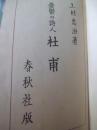 上村忠治著
憂鬱の詩人
杜甫
春秋社版